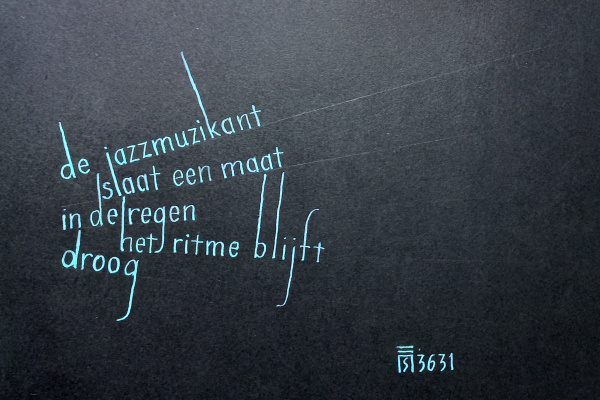 de jazzmuzikant
slaat een maat
in de regen
het ritme blijft
droog
3631